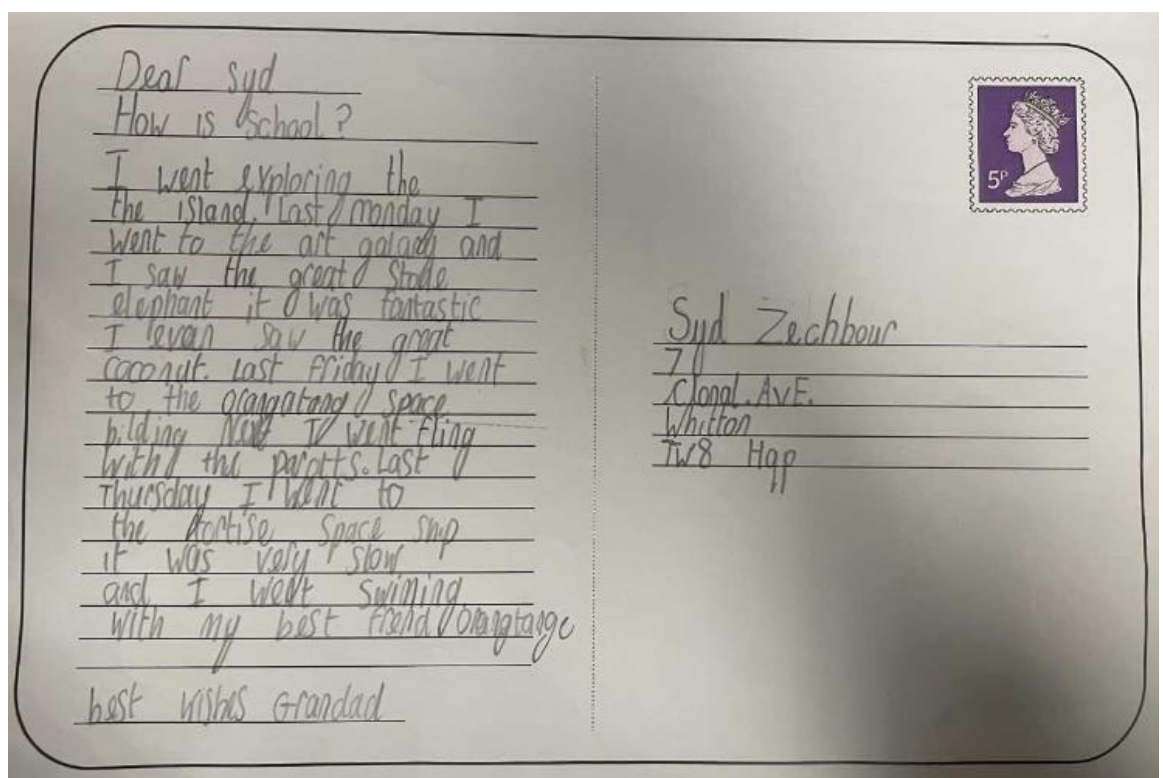 Dear Syd
How is School?
I went exploring the
the island. Last monday I
went to the art galary and
I saw the great Stone
elephant it was fantastic
I evan saw the great
coconut. Last friday I went
to the orangatang space
bilding Next I went fling
with the parotts. Last
Thursday I went to
the tortise space ship
it was very slow
and I went swiming
with my best frend orangtange
best wishes Grandad
5P
Syd Zechbour
7
Clonal. AvE.
Whitton
TW8 Hqp